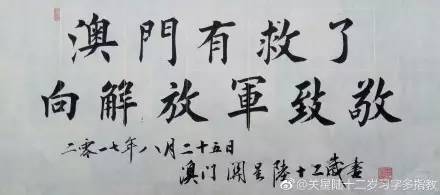 澳門有救了
向解放軍致敬
二零一七年八月二十五日
澳门 關星陸十二歲書
@关星陆十二岁习字多指教